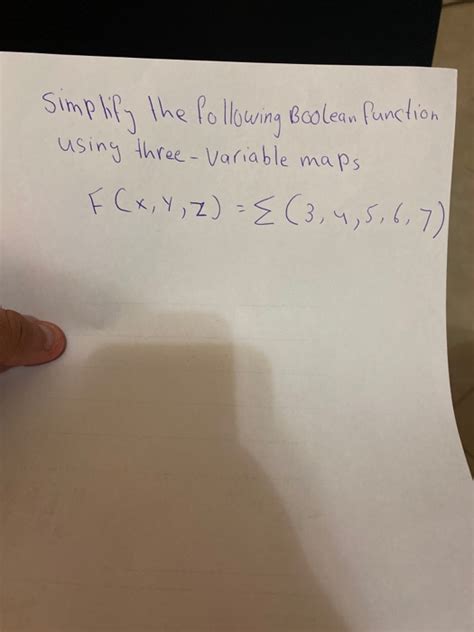 Simplify the following Boolean function
using three-variable maps
F(x, y, z) = Σ(3, 4, 5, 6, 7)